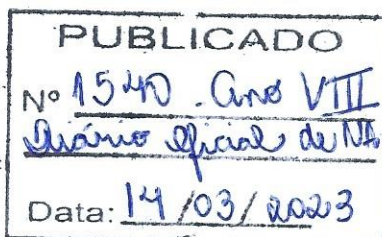 PUBLICADO
Nº 1540 . Ano VIII
Diário Oficial de NA
Data: 14 / 03 / 2023